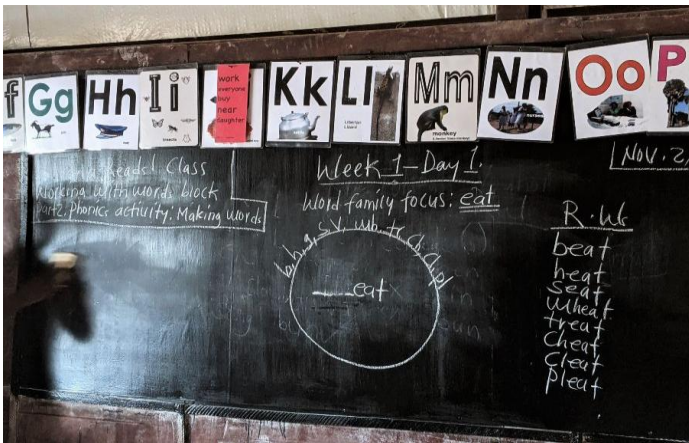 f Gg Hh Ii Kk Ll Mm Nn Oo P
work
everyone
busy
near
daughter
monkey
Class
Working with words block
Part2: Phonics activity: Making words
Week 1-Day 1.
Word family focus: eat
b, h, g, s, v, wh, tr, ch, cl, pl
__eat
Nov. 2,
R. Ws
beat
heat
seat
wheat
treat
cheat
cleat
pleat